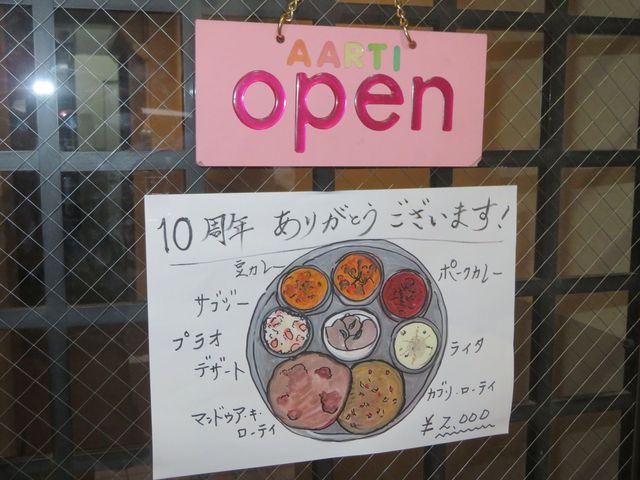 AARTI
open
10周年 ありがとうございます!
豆カレー
ポークカレー
サブジー
プラオ
ライタ
デザート
カブリ・ローティ
マンドゥア・キ・
ローティ
¥2,000